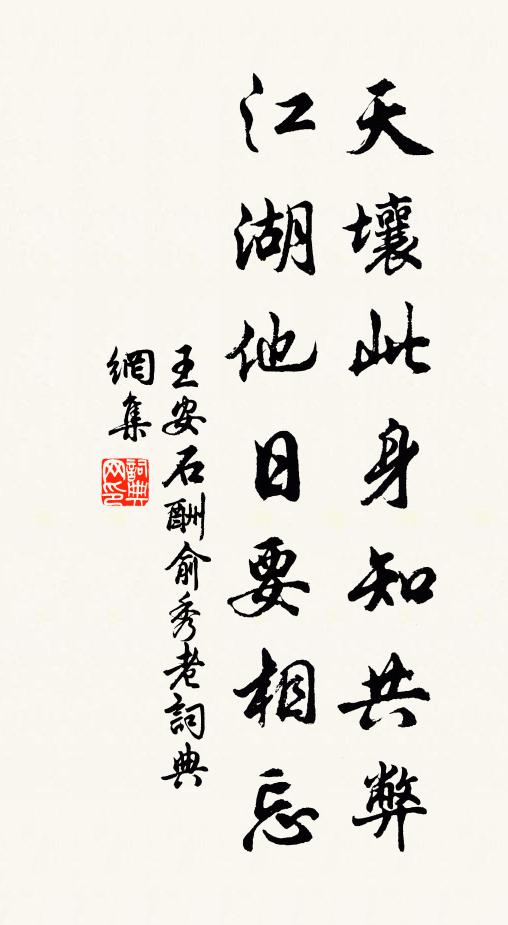 天壤此身知共弊
江湖他日要相忘
王安石酬俞秀老詞典
網集
詞典網印